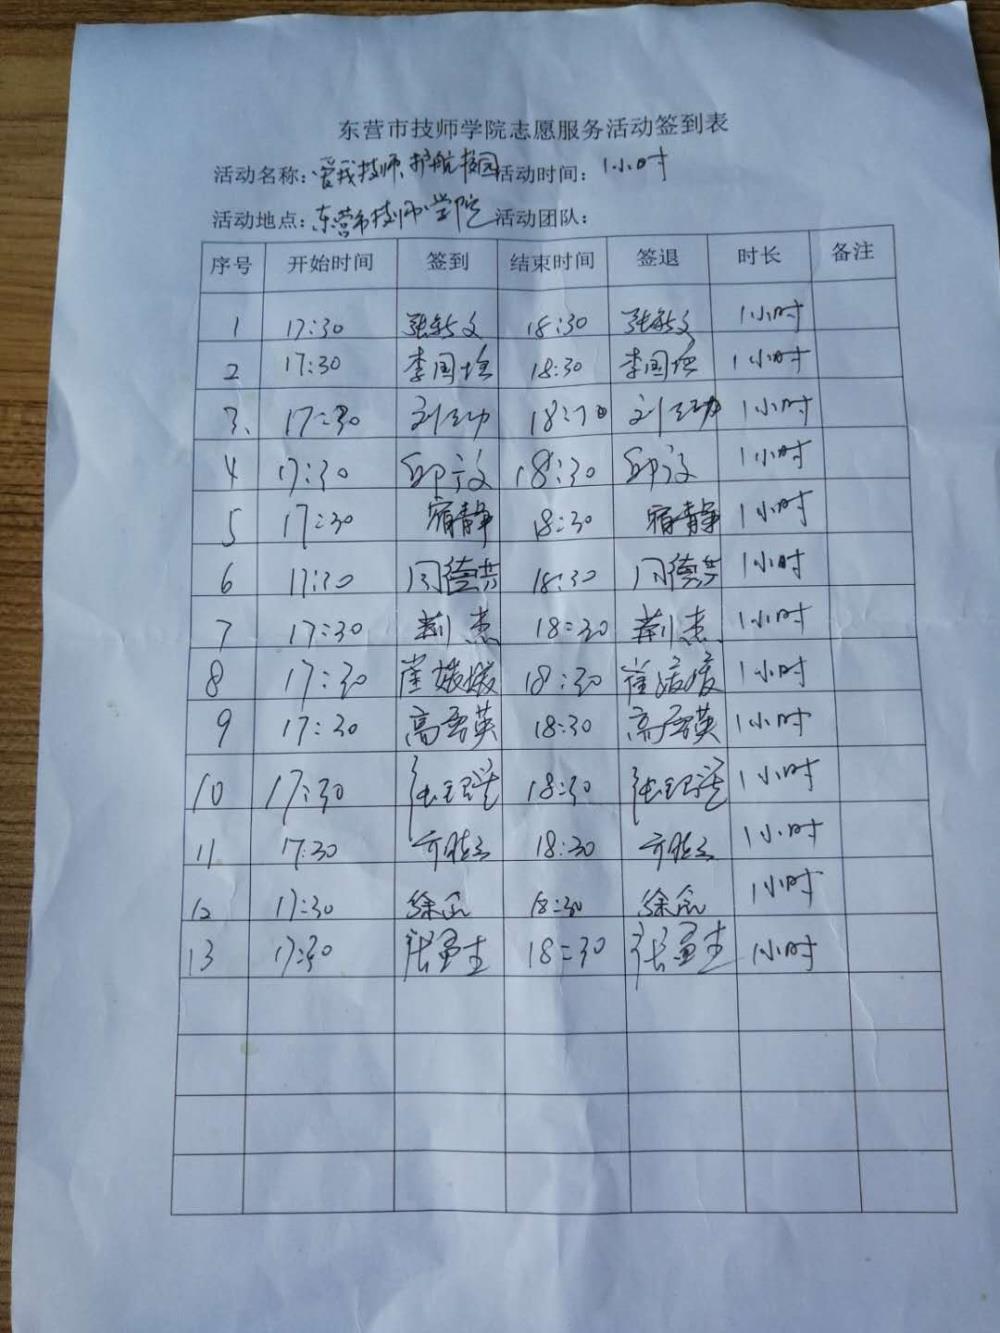 东营市技师学院志愿服务活动签到表
活动名称：爱我技师、护航校园 活动时间：1小时
活动地点：东营市技师学院 活动团队：
序号 开始时间 签到 结束时间 签退 时长 备注
1 17:30 张新文 18:30 张新文 1小时
2 17:30 李国培 18:30 李国培 1小时
3、 17:30 刘 18:30 刘 1小时
4 17:30 邱文 18:30 邱文 1小时
5 17:30 宿静 18:30 宿静 1小时
6 17:30 闫德芸 18:30 闫德芸 1小时
7 17:30 荆杰 18:30 荆杰 1小时
8 17:30 崔媛媛 18:30 崔媛媛 1小时
9 17:30 高秀英 18:30 高秀英 1小时
10 17:30 张 18:30 张 1小时
11 17:30 18:30 1小时
12 17:30 徐 18:30 徐 1小时
13 17:30 张 18:30 张 1小时